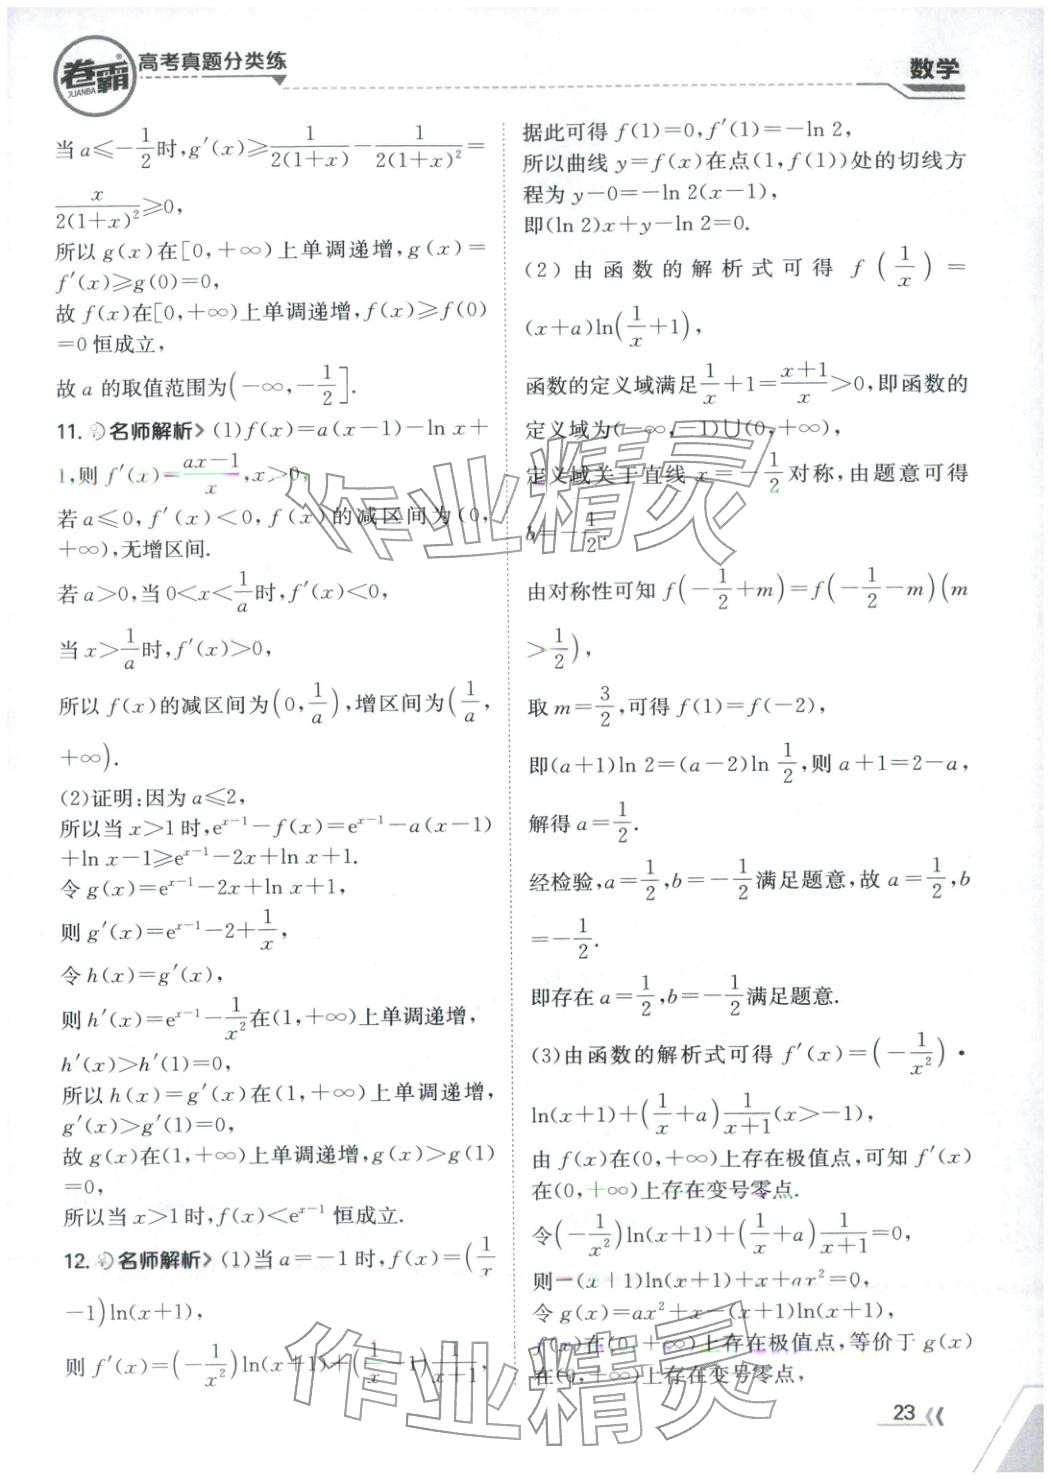 卷霸
JUANBA
高考真题分类练
数学
当 a≤-1/2时,g′(x)≥1/(2(1+x))-1/(2(1+x)²)=
x/(2(1+x)²)≥0,
所以 g(x)在[0,+∞)上单调递增,g(x)=
f′(x)≥g(0)=0,
故 f(x)在[0,+∞)上单调递增,f(x)≥f(0)
=0 恒成立,
故 a 的取值范围为(-∞,-1/2].
11. 名师解析> (1)f(x)=a(x-1)-ln x+
1,则 f′(x)=(ax-1)/x,x>0,
若 a≤0,f′(x)<0,f(x)的减区间为(0,
+∞),无增区间.
若 a>0,当 0<x<1/a时,f′(x)<0,
当 x>1/a时,f′(x)>0,
所以 f(x)的减区间为(0,1/a),增区间为(1/a,
+∞).
(2)证明:因为 a≤2,
所以当 x>1 时,eˣ⁻¹-f(x)=eˣ⁻¹-a(x-1)
+ln x-1≥eˣ⁻¹-2x+ln x+1.
令 g(x)=eˣ⁻¹-2x+ln x+1,
则 g′(x)=eˣ⁻¹-2+1/x,
令 h(x)=g′(x),
则 h′(x)=eˣ⁻¹-1/x²在(1,+∞)上单调递增,
h′(x)>h′(1)=0,
所以 h(x)=g′(x)在(1,+∞)上单调递增,
g′(x)>g′(1)=0,
故 g(x)在(1,+∞)上单调递增,g(x)>g(1)
=0,
所以当 x>1 时,f(x)<eˣ⁻¹ 恒成立.
12. 名师解析> (1)当 a=-1 时,f(x)=(1/x
-1)ln(x+1),
则 f′(x)=(-1/x²)ln(x+1)+(1/x-1)1/(x+1),
据此可得 f(1)=0,f′(1)=-ln 2,
所以曲线 y=f(x)在点(1,f(1))处的切线方
程为 y-0=-ln 2(x-1),
即(ln 2)x+y-ln 2=0.
(2)由函数的解析式可得 f(1/x)=
(x+a)ln(1/x+1),
函数的定义域满足1/x+1=(x+1)/x>0,即函数的
定义域为(-∞,-1)∪(0,+∞),
定义域关于直线 x=-1/2对称,由题意可得
b=-1/2.
由对称性可知 f(-1/2+m)=f(-1/2-m)(m
>1/2),
取 m=3/2,可得 f(1)=f(-2),
即(a+1)ln 2=(a-2)ln 1/2,则 a+1=2-a,
解得 a=1/2.
经检验,a=1/2,b=-1/2满足题意,故 a=1/2,b
=-1/2.
即存在 a=1/2,b=-1/2满足题意.
(3)由函数的解析式可得 f′(x)=(-1/x²)·
ln(x+1)+(1/x+a)1/(x+1)(x>-1),
由 f(x)在(0,+∞)上存在极值点,可知 f′(x)
在(0,+∞)上存在变号零点.
令(-1/x²)ln(x+1)+(1/x+a)1/(x+1)=0,
则-(x+1)ln(x+1)+x+ax²=0,
令 g(x)=ax²+x-(x+1)ln(x+1),
f(x)在(0,+∞)上存在极值点,等价于 g(x)
在(0,+∞)上存在变号零点,
23
作业精灵
作业精灵